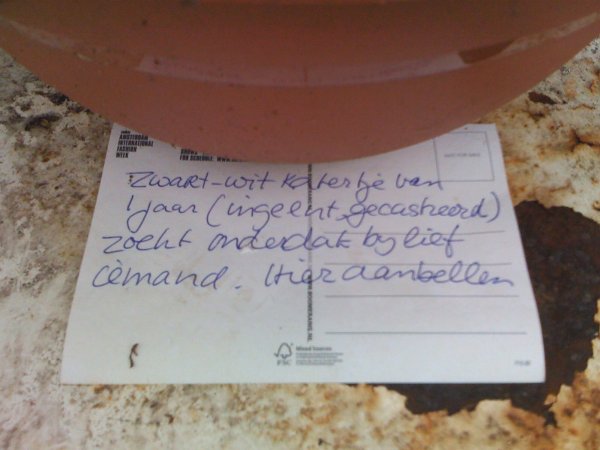 AMSTERDAM
INTERNATIONAL
FASHION
WEEK
FOR SCHEDULE: WWW.
NOT FOR SALE
Zwart-wit katertje van
1 jaar (ingeënt, gecastreerd)
zoekt onderdak bij lief
iemand. Hier aanbellen
WWW.BOOMERANG.NL
FSC
Mixed Sources